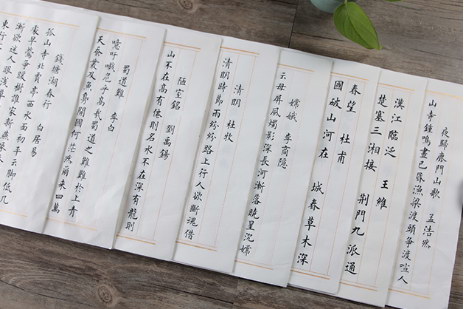 夜歸鹿門山歌 孟浩然
山寺鐘鳴晝已昏漁梁渡頭爭渡喧人
漢江臨泛 王維
楚塞三湘接 荊門九派通
春望 杜甫
國破山河在 城春草木深
嫦娥 李商隱
云母屏風燭影深長河漸落曉星沉嫦
清明 杜牧
清明時節雨紛紛路上行人欲斷魂借
陋室銘 劉禹錫
山不在高有仙則名水不在深有龍則
蜀道難 李白
噫吁嚱危乎高哉蜀道難難於上青
天蠶叢及魚鳧開國何茫然爾來四萬
錢塘湖春行 白居易
孤山寺北賈亭西水面初平云腳低几
處早鶯爭暖樹誰家新燕
漸欲迷人眼淺